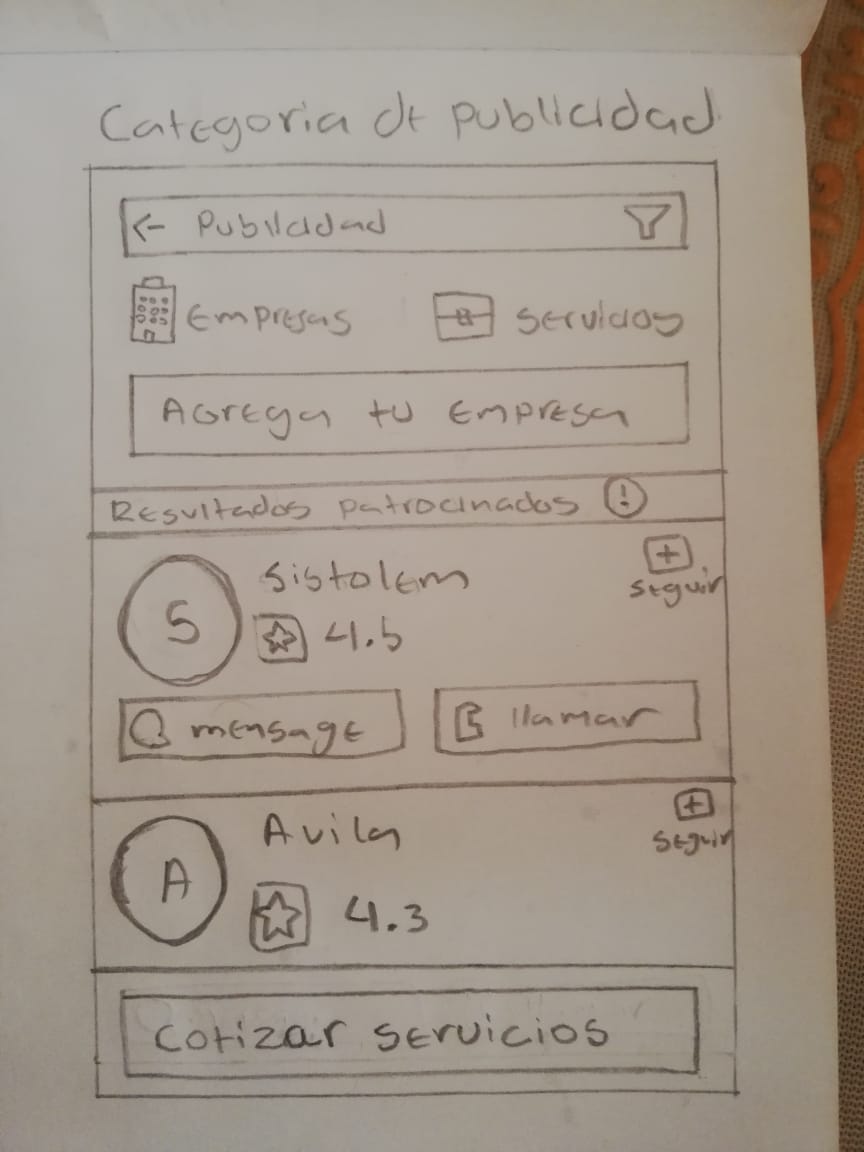 Categoria de publicidad
← Publicidad
Empresas
Servicios
Agrega tu empresa
Resultados patrocinados !
Sistolem
+
seguir
S
4.5
mensage
llamar
Avila
+
seguir
A
4.3
cotizar servicios